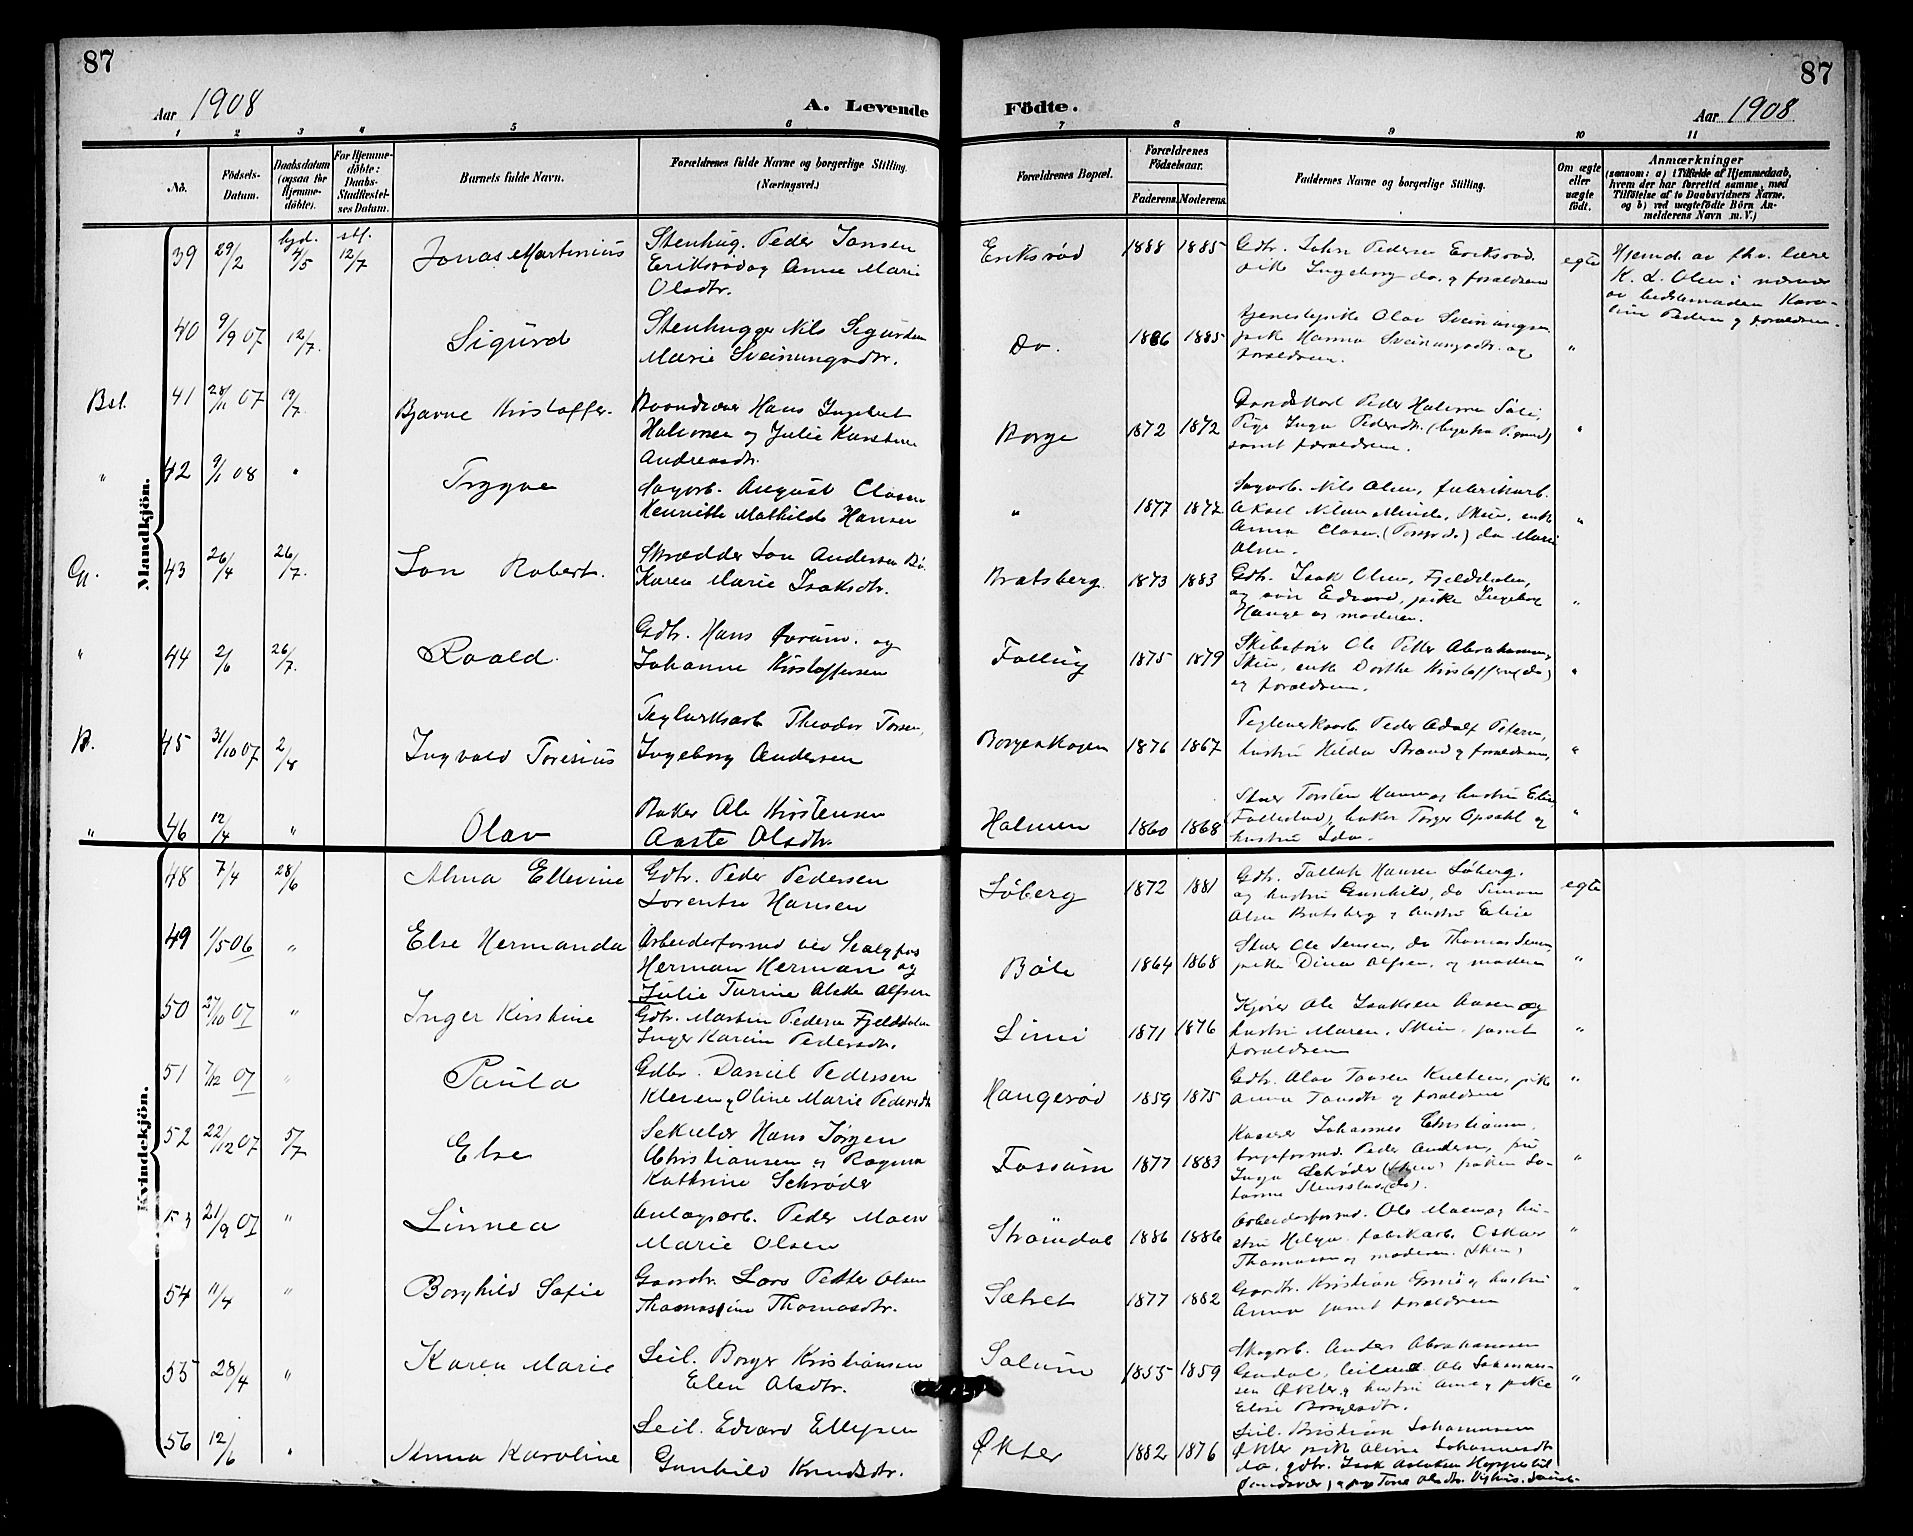 87
87
Aar 1908
A. Levende
Födte.
Aar 1908
1 2 3 4 5 6 7 8 9 10 11
No.
Födsels-
Datum.
Daabsdatum
(ogsaa for
Hjemme-
döbte).
For Hjemme-
döbte:
Daabs-
Stadfæstel-
ses Datum.
Barnets fulde Navn.
Forældrenes fulde Navne og borgerlige Stilling.
(Næringsvei.)
Forældrenes Bopæl.
Forældrenes
Födselsaar.
Faderens. Moderens.
Faddernes Navne og borgerlige Stilling.
Om ægte
eller
uægte
födt.
Anmærkninger
(saasom: a) i Tilfælde af Hjemmedaab,
hvem der har forrettet samme, med
Tilföielse af to Daabsvidners Navne,
og b) ved uægtefödte Börn An-
melderens Navn m. V.)
Mandkjön.
39 29/2 hjd. 4/5 stf. 12/7 Jonas Martinius
Stenhug. Peder Jansen
Eriksrød og Anne Marie
Olsdtr.
Eriksrød 1888 1885
Gdbr. John Pedersen Eriksrød
pike Ingeborg do. og forældrene
egte
Hjemd. av fhv. lærer
K. L. Olsen i nærvær
av bedstemoderen Karo-
line Pedersen og forældrene.
40 9/9 07 12/7. Sigurd
Stenhugger Nils Sigurdsen
Marie Sveinungsdtr.
Do. 1886 1885
tjenestepike Olav Sveinungsen
pike Hanna Sveinungsdtr. og
forældrene.
"
Bsl. 41 28/11 07 19/7. Bjarne Kristoffer.
Hans Ingebret
Halvorsen og Julie Karstine
Andreasdtr.
Borge 1872 1872
Peder Halvorsen
Pige Inga Pedersdtr.
samt forældrene.
"
" 42 9/1 08 " Trygve
Sagarb. August Clasen
Henriette Mathilde Hansen
" 1877 1872
Sagarb. Nils Olsen, fabrikarb.
Aksel Nilsen Skien, enke
Anna Clasen, do Marie
Olsen.
"
Gj. 43 26/4 26/7. Jon Robert.
Skrædder Jon Andersen Bø.
Karen Marie Isaksdtr.
Bratsberg. 1873 1883
Gdbr. Isak Olsen, Fjelddalen,
og søn Edvard, pike Ingeborg
Hauge og moderen.
"
" 44 2/6 26/7. Roald.
Gdbr. Hans og
Johanne Kristoffersen
1875 1879
Skibsfører Ole Petter Abrahamsen,
Skien, enke Dorthe Kristoffersen (do)
og forældrene.
"
B. 45 31/10 07 2/8 Ingvald Toresius
Teglverksarb Theodor Torsen,
Ingeborg Andersen
Borgeskogen 1876 1867
Teglverksarb. Peder Adolf Petersen,
hustru Hilda Strand og forældrene,
"
" 46 12/4 " Olav
Baker Ole Kirstensen
Aaste Olsdtr.
Holmen 1860 1868
Torsten Hansen og hustru Elise
baker Torger Opsahl og
hustru Ida.
"
Kvindekjön.
48 7/4 28/6 Alma Ellevine
Gdbr. Peder Pedersen
Lorentse Hansen
Søberg 1872 1881
Gdbr. Tallak Hansen Søberg.
og hustru Gunhild, do Simon
Olsen Bratsberg og hustru Elise
egte
49 1/5 06 " Else Hermanda
Arbeiderformd ved
Herman Herman og
Julie Turine Alette Alfsen
Bøle 1864 1868
Ole Jensen, do Thomas Jensen,
pike Dina Alfsen, og moderen
"
50 27/10 07 " Inger Kirstine
Gdbr. Martin Pedersen Fjelddalen
Inger Karine Pedersdtr.
Limi 1871 1876
Kjører Ole Isaksen Aasen og
hustru Maren, Skien, samt
forældrene
"
51 7/12 07 " Paula
Gdbr. Daniel Pedersen
Kleven og Oline Marie Pedersdtr
Haugerød 1859 1875
Gdbr. Olav Tansen Kulten, pike
Anna Tansdtr og forældrene
"
52 22/12 07 5/7 Else
Sekretær Hans Jørgen
Christiansen og Ragna
Kathrine Schrøder
Fossum 1877 1883
Kaserer Johannes Christiansen,
brugsformd. Peder Andersen, frue
Inga Schrøder (Skien) frøken Jo-
hanne Stensstad (do).
"
53 21/9 07 " Linnea
Anlægsarb. Peder Moen
Marie Olsen
Strømdal 1886 1886
Arbeiderformd. Ole Moen og hu-
stru Helga fabrikarb. Oskar
Thomasen og moderen. (Skien)
"
54 11/4 " Borghild Sofie
Gaardbr. Lars Petter Olsen
Thomassine Thomasdtr.
Sætret 1877 1882
Gaardbr. Kristian og hustru
Anna samt forældrene
"
55 28/4 " Karen Marie
Leil. Borger Kristiansen
Elen Olsdtr.
Solum 1855 1859
Skogarb. Anders Abrahamsen
leilend Ole Johannes-
sen Økter og hustru Anne og pike
Elise Borgersdtr.
"
56 12/6 " Anna Karoline
Leil. Edvard Ellefsen
Gunhild Knudsdtr.
Økter 1882 1876
Leil. Kristian Johannessen
Økter pike Oline Johannesdtr
do, gdbr. Isak
og pige Tone Olsdtr.